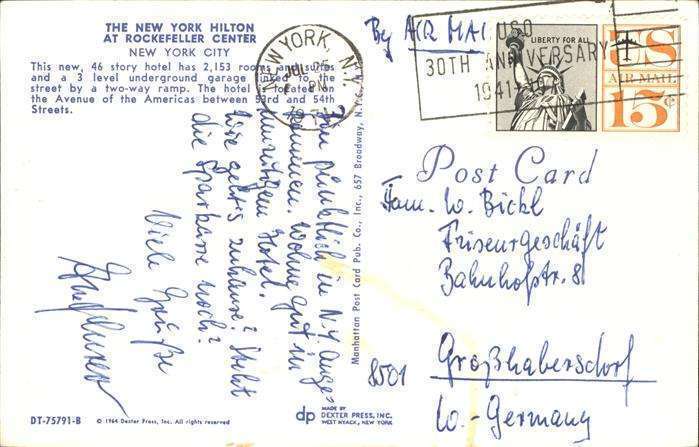 THE NEW YORK HILTON
AT ROCKEFELLER CENTER
NEW YORK CITY
This new, 46 story hotel has 2,153 rooms and suites
and a 3 level underground garage linked to the
street by a two-way ramp. The hotel is located on
the Avenue of the Americas between 53rd and 54th
Streets.
NEW YORK, N.Y.
JUL
PM
By AIR MAIL
USO
30TH ANNIVERSARY
1941-1971
LIBERTY FOR ALL
US
AIR MAIL
15¢
Bin pünktlich in N.Y. ange-
kommen. Wohne gut in
Hotel.
Wie geht's zuhause? Steht
die Sparkasse noch?
Viele Grüße
Manhattan Post Card Pub. Co., Inc., 657 Broadway, N.Y.C.
Post Card
Fam. W. Bickl
Friseurgeschäft
Bahnhofstr. 8
8501
Großhabersdorf
W.-Germany
DT-75791-B
© 1964 Dexter Press, Inc. All rights reserved
dp
MADE BY
DEXTER PRESS, INC.
WEST NYACK, NEW YORK